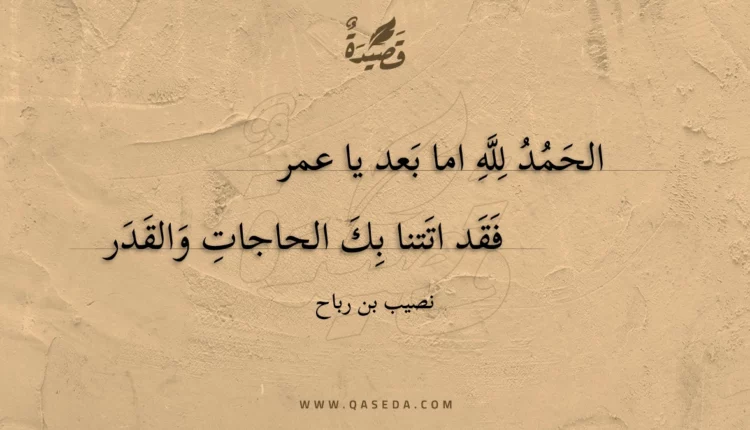 قَصِيْدَةٌ
الحَمُدُ لِلَّهِ اما بَعد يا عمر
فَقَد اتَتنا بِكَ الحاجاتِ وَالقَدَر
نصيب بن رباح
WWW.QASEDA.COM